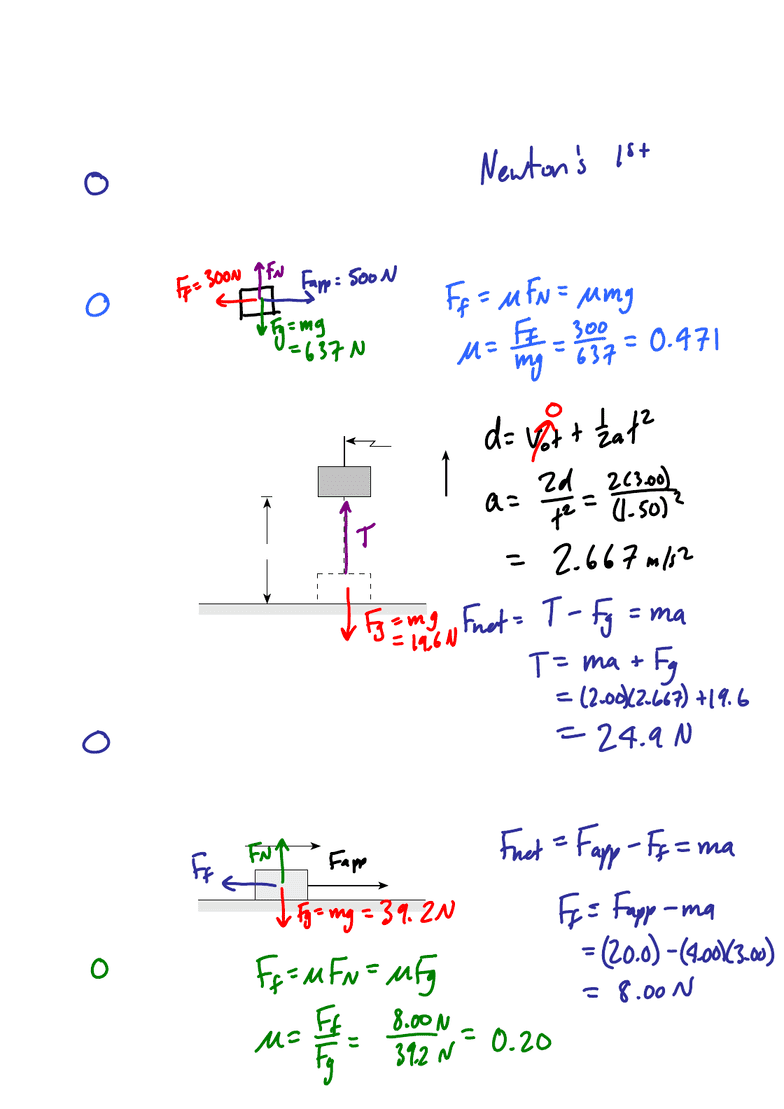 Newton's 1st
Ff = 300N
FN
Fapp = 500N
Fg = mg
= 637 N
Ff = μFN = μmg
μ = Ff/mg = 300/637 = 0.471
d = v₀t + ½at²
0
a = 2d/t² = 2(3.00)/(1.50)²
= 2.667 m/s²
T
Fg = mg
= 19.6N
Fnet = T - Fg = ma
T = ma + Fg
= (2.00)(2.667) + 19.6
= 24.9 N
Fnet = Fapp - Ff = ma
FN
Ff
Fapp
Fg = mg = 39.2N
Ff = Fapp - ma
= (20.0) - (4.00)(3.00)
= 8.00 N
Ff = μFN = μFg
μ = Ff/Fg = 8.00N/39.2 N = 0.20